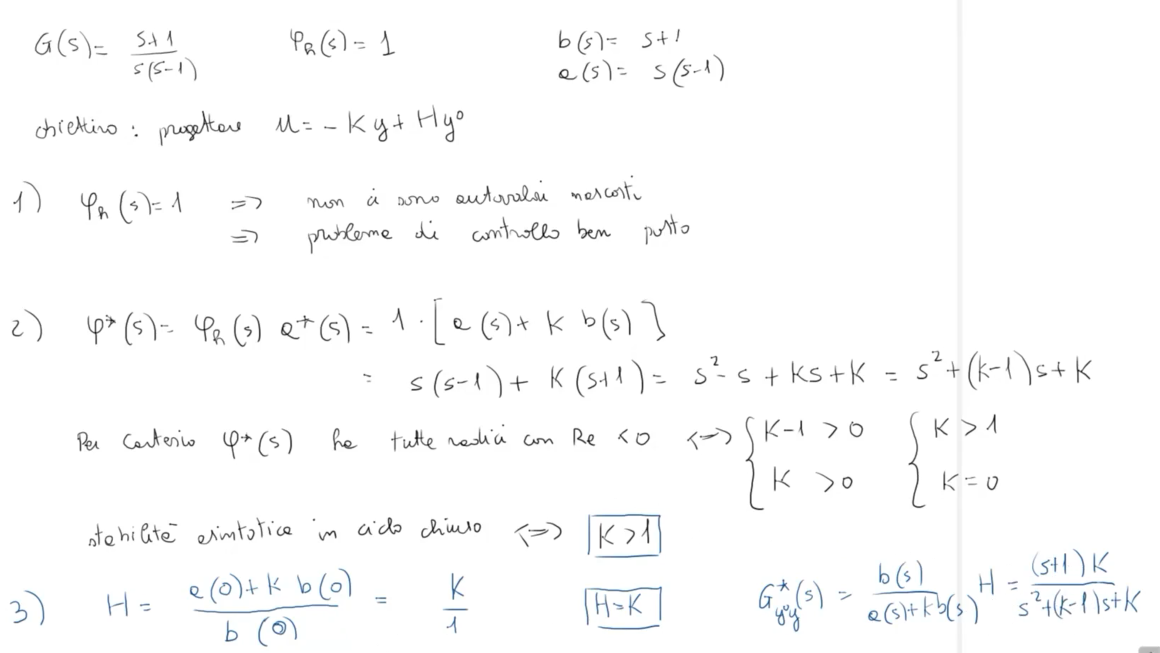 G(s) = s+1 / s(s-1)    φR(s) = 1    b(s) = s+1
a(s) = s(s-1)
obiettivo : progettare u = - Ky + Hy°
1) φR(s)=1 => non ci sono autovalori nascosti
=> problema di controllo ben posto
2) φ*(s) = φR(s) a*(s) = 1 · [a(s) + K b(s)]
= s(s-1) + K(s+1) = s²-s + Ks+K = s²+(K-1)s+K
Per Cartesio φ*(s) ha tutte radici con Re <0 <=> { K-1 >0    { K >1
K >0    K=0
stabilità asintotica in ciclo chiuso <=> K>1
3) H = a(0)+K b(0) / b(0) = K / 1    H=K    G*y°y(s) = b(s) / a(s)+Kb(s) H = (s+1)K / s²+(K-1)s+K